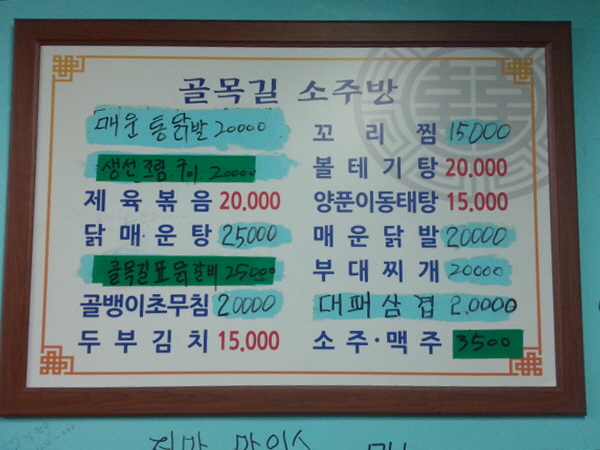 골목길 소주방
매운 통닭발 20000
생선조림.구이. 20000
제육볶음 20.000
닭매운탕 25000
골목길표 닭갈비 25000
골뱅이초무침 20000
두부김치 15.000
꼬리찜 15000
볼테기탕 20.000
양푼이동태탕 15.000
매운닭발 20000
부대찌개 20000
대패삼겹 2.0000
소주·맥주 3500